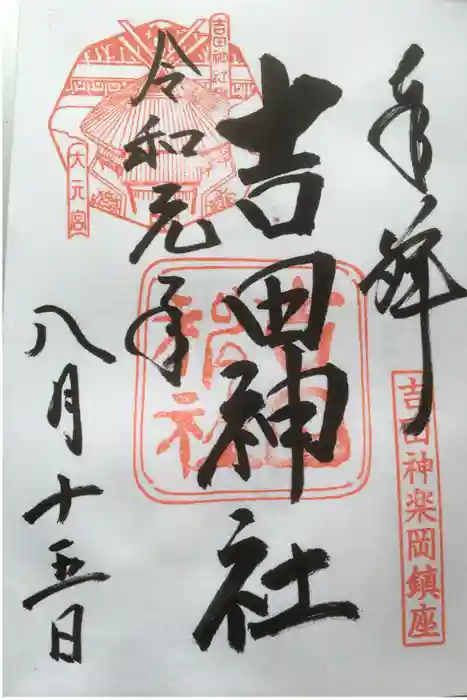 奉拝
吉田神楽岡鎮座
吉田神社
吉田神社
令和元年
八月十五日
吉田神社
大元宮